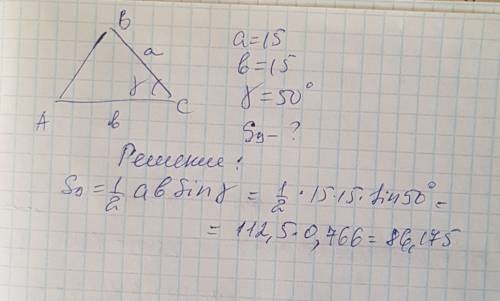 B
a
γ
A
C
b
a=15
b=15
γ=50°
S_Δ - ?
Решение:
S_Δ = 1/2 ab sin γ = 1/2 · 15·15· sin 50° =
= 112,5·0,766 = 86,175